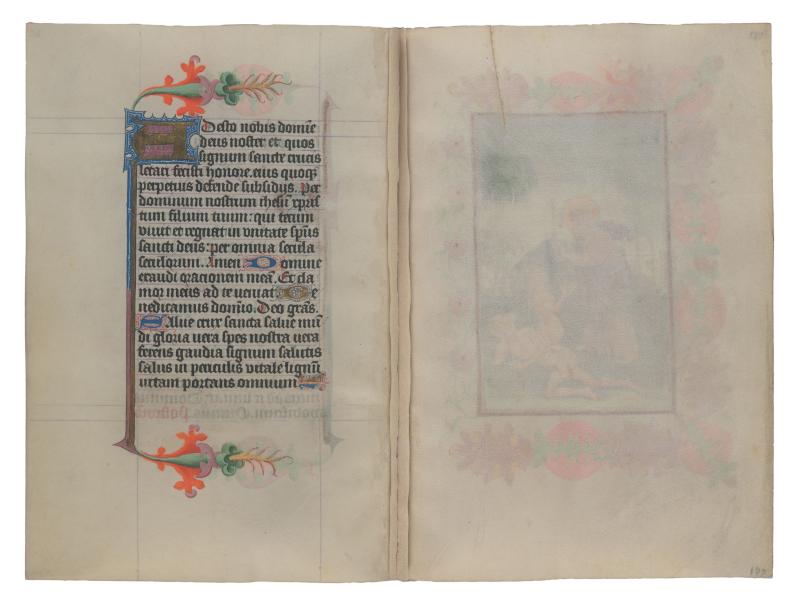 Adesto nobis domīe
deus noster et quos
signum sancte crucis
letari fecisti honore. eius quoqꝫ
perpetuis defende subsidijs. Per
dominum nostrum ihesū xpris
tum filium tuum: qui tecum
viuit et regnat in vnitate spūs
sancti deus: per omnia secula
seculorum. Amen. Domine
exaudi oracionem meā. Et cla
mor meus ad te veniat. Be
nedicamus domīo. Deo grās.
Salue crux sancta salue mū
di gloria vera spes nostra vera
ferens gaudia signum salutis
salus in periculis vitale lignū
vitam portans omnium